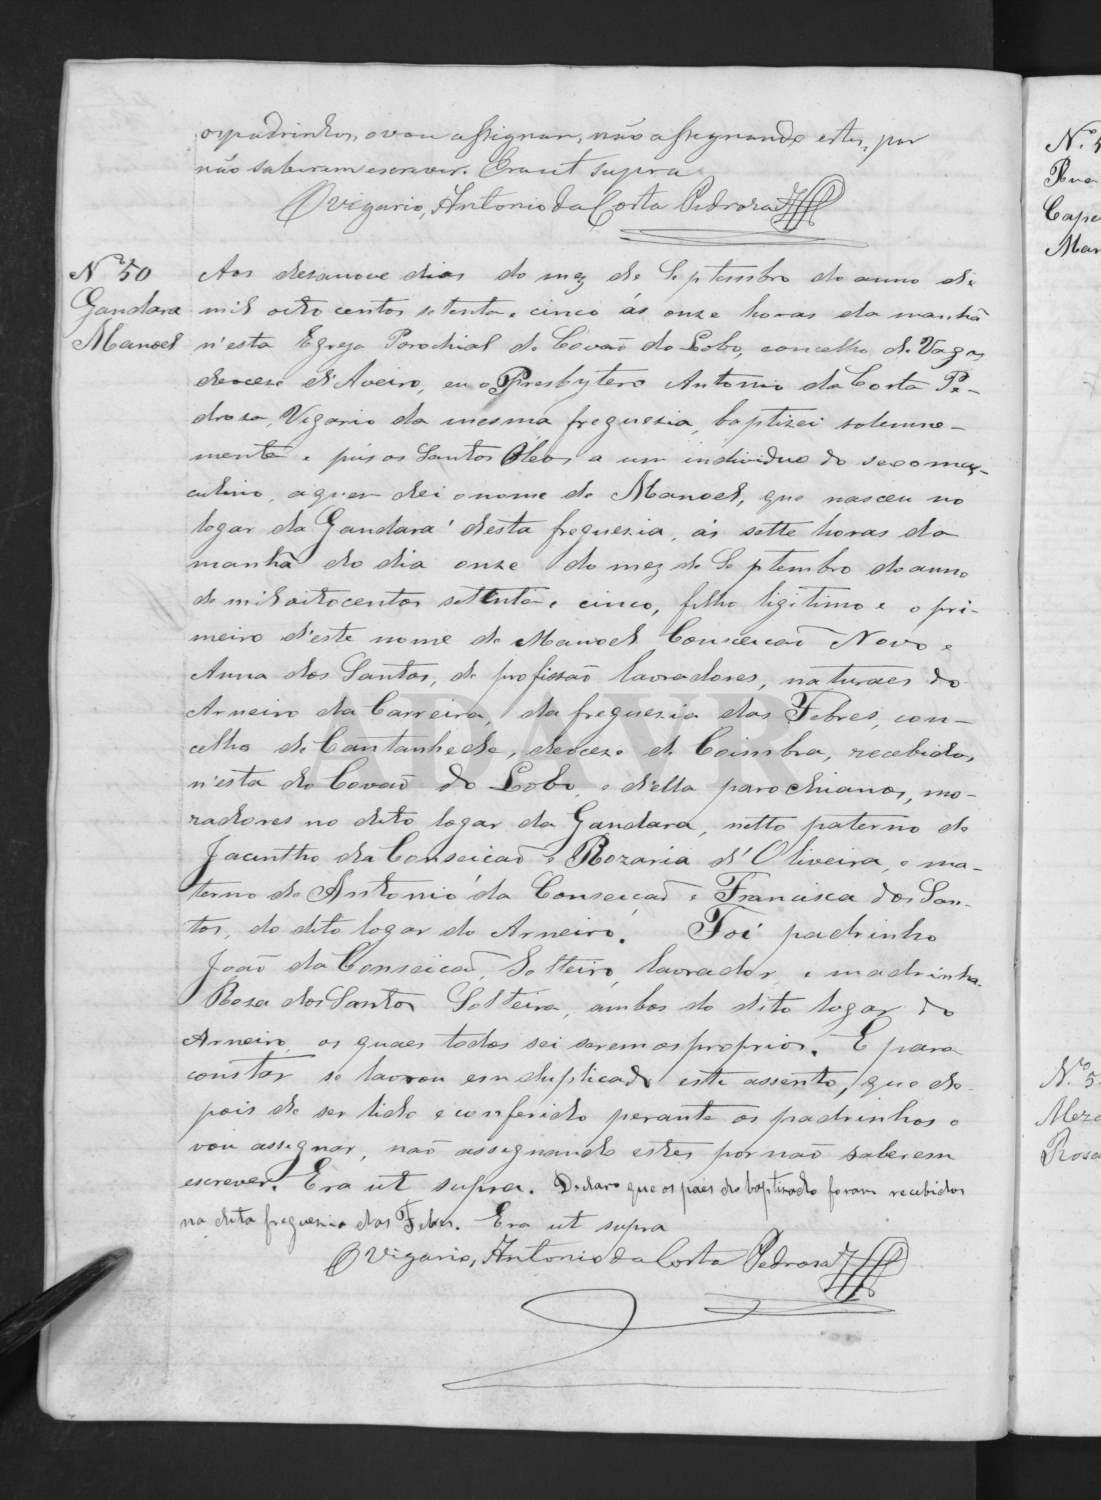 os padrinhos, o vou assignar, não assignando estes, por
não saberem escrever. Era ut supra
O Vigario, Antonio da Costa Pedroza
Nº 50
Gandara
Manoel
Aos desanove dias do mez de Septembro do anno de
mil oito centos setenta e cinco ás onze horas da manhã
n'esta Egreja Parochial de Covaõ do Lobo, concelho de Vagos,
deoceze d'Aveiro, eu o Presbytero Antonio da Costa Pe-
droza, Vigario da mesma freguezia, baptizei solemne-
mente e puis os Santos Oleos a um individuo do sexo mas-
culino, a quem dei o nome de Manoel, que nasceu no
logar da Gandara desta freguezia, ás sette horas da
manhã do dia onze do mez de Septembro do anno
de mil oitocentos settenta e cinco, filho ligitimo e o pri-
meiro d'este nome de Manoel Conseicaõ Novo e
Anna dos Santos, de profissaõ lavradores, naturaes do
Arneiro da Carreira, da freguezia das Febres, con-
celho de Cantanhede, deoceze de Coimbra, recebidos
n'esta do Covaõ do Lobo, e d'ella parochianos, mo-
radores no dito logar da Gandara, netto paterno de
Jacintho da Conseicaõ e Rozaria d'Oliveira, e ma-
terno de Antonio da Conseicaõ e Francisca dos San-
tos, do dito logar do Arneiro. Foi padrinho
Joaõ da Conseicaõ, Solteiro, lavrador, e madrinha
Roza dos Santos Solteira, ambos do dito logar do
Arneiro, os quaes todos sei serem os proprios. E para
constar se lavrou em duplicado este assento, que de-
pois de ser lido e conferido perante os padrinhos o
vou assignar, naõ assignando estes por naõ saberem
escrever. Era ut supra. Declaro que os paes do baptizado foram recebidos
na dita freguezia das Febres. Era ut supra
O Vigario, Antonio da Costa Pedroza
ADAVR
Nº 5
Rua
Cape
Man
Nº 5
Roza